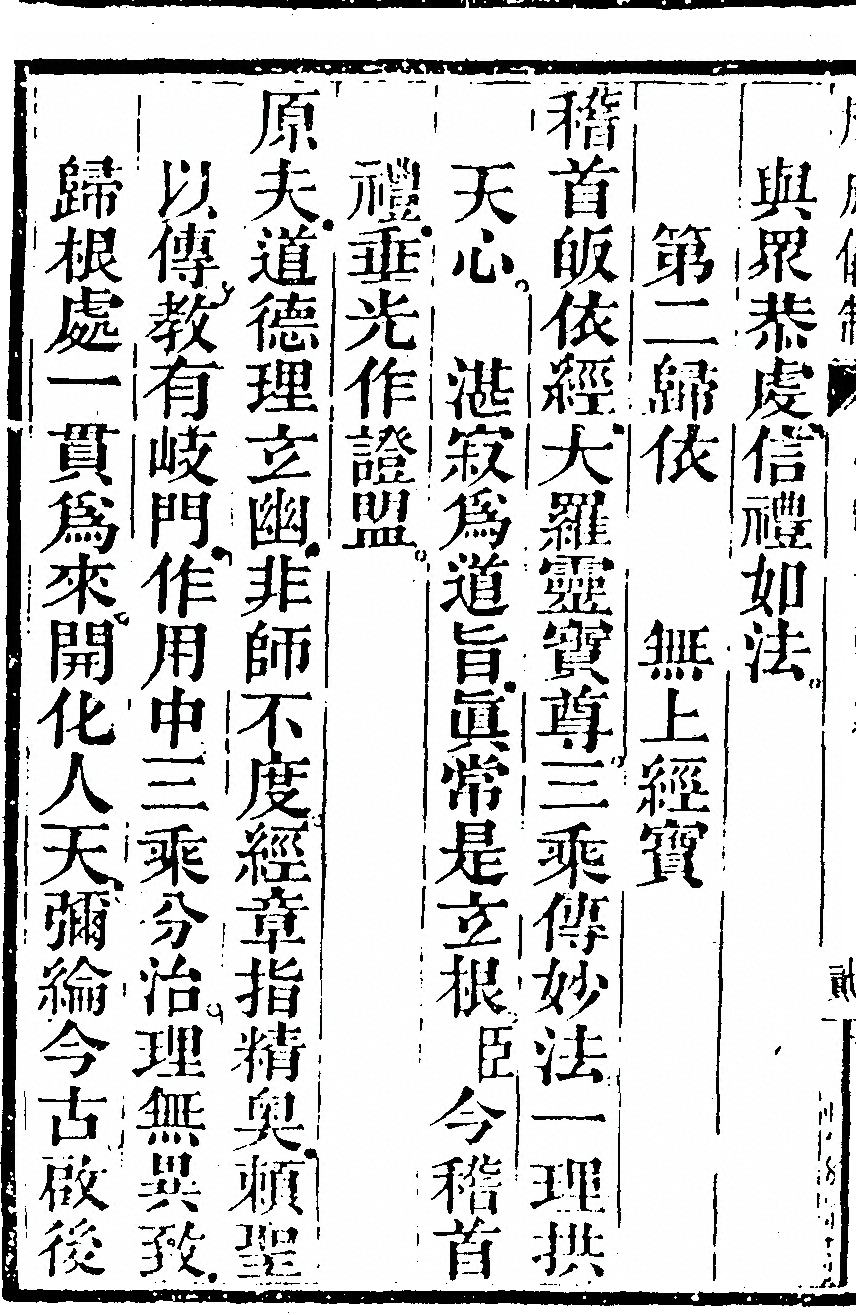 與眾恭虔信禮如法。
第二歸依　無上經寶
稽首皈依經大羅靈寶尊三乘傳妙法一理拱
天心。　湛寂爲道旨眞常是立根。臣今稽首
禮垂光作證盟。
原夫道德理立幽非師不度。經章指精奥頼聖
以傳教有岐門作用中三乘分治。理無異致
歸根處一貫爲來。開化人天彌綸今古啟後